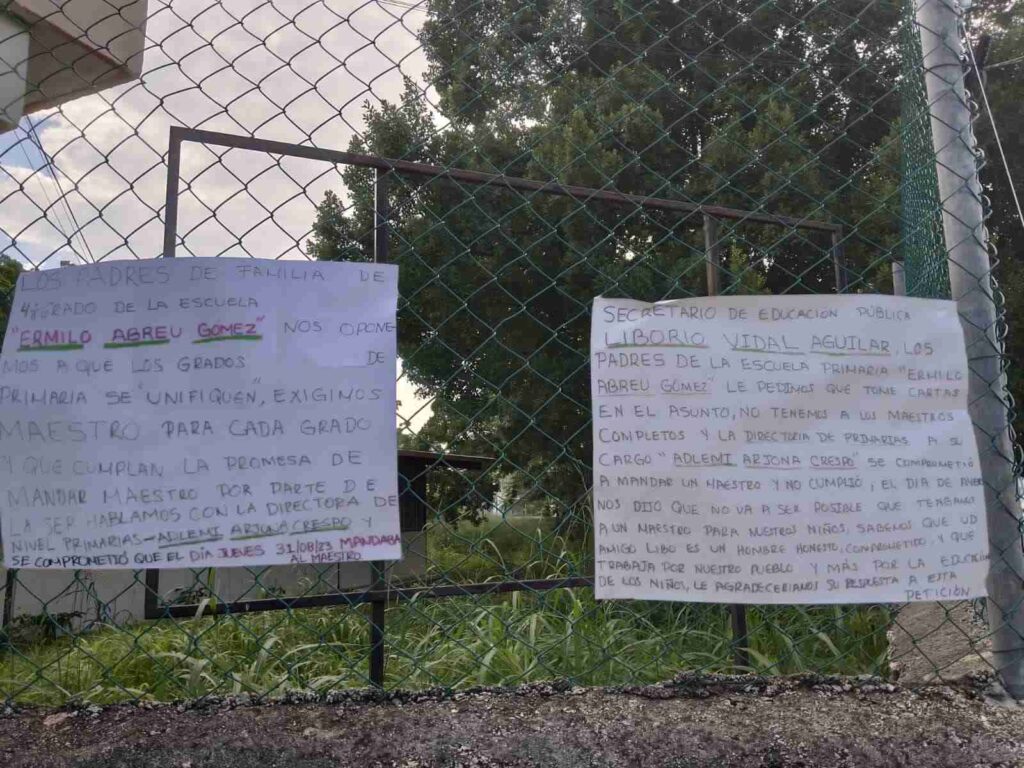 LOS PADRES DE FAMILIA DE
4º GRADO DE LA ESCUELA
"ERMILO ABREU GÓMEZ" NOS OPONE-
MOS A QUE LOS GRADOS DE
PRIMARIA SE "UNIFIQUEN", EXIGIMOS
MAESTRO PARA CADA GRADO
Y QUE CUMPLAN LA PROMESA DE
MANDAR MAESTRO POR PARTE DE
LA SEP. HABLAMOS CON LA DIRECTORA DE
NIVEL PRIMARIAS-ADLEMI ARJONA CRESPO Y
SE COMPROMETIÓ QUE EL DÍA JUEVES 31/08/23 MANDABA
AL MAESTRO
SECRETARIO DE EDUCACIÓN PÚBLICA
LIBORIO VIDAL AGUILAR, LOS
PADRES DE LA ESCUELA PRIMARIA "ERMILO
ABREU GÓMEZ" LE PEDIMOS QUE TOME CARTAS
EN EL ASUNTO, NO TENEMOS A LOS MAESTROS
COMPLETOS Y LA DIRECTORA DE PRIMARIAS A SU
CARGO "ADLEMI ARJONA CRESPO" SE COMPROMETIÓ
A MANDAR UN MAESTRO Y NO CUMPLIÓ, EL DÍA DE AYER
NOS DIJO QUE NO VA A SER POSIBLE QUE TENGAMOS
A UN MAESTRO PARA NUESTROS NIÑOS, SABEMOS QUE UD
AMIGO LIBO ES UN HOMBRE HONESTO, COMPROMETIDO, Y QUE
TRABAJA POR NUESTRO PUEBLO Y MÁS POR LA EDUCACIÓN
DE LOS NIÑOS, LE AGRADECERIAMOS SU RESPUESTA A ESTA
PETICIÓN